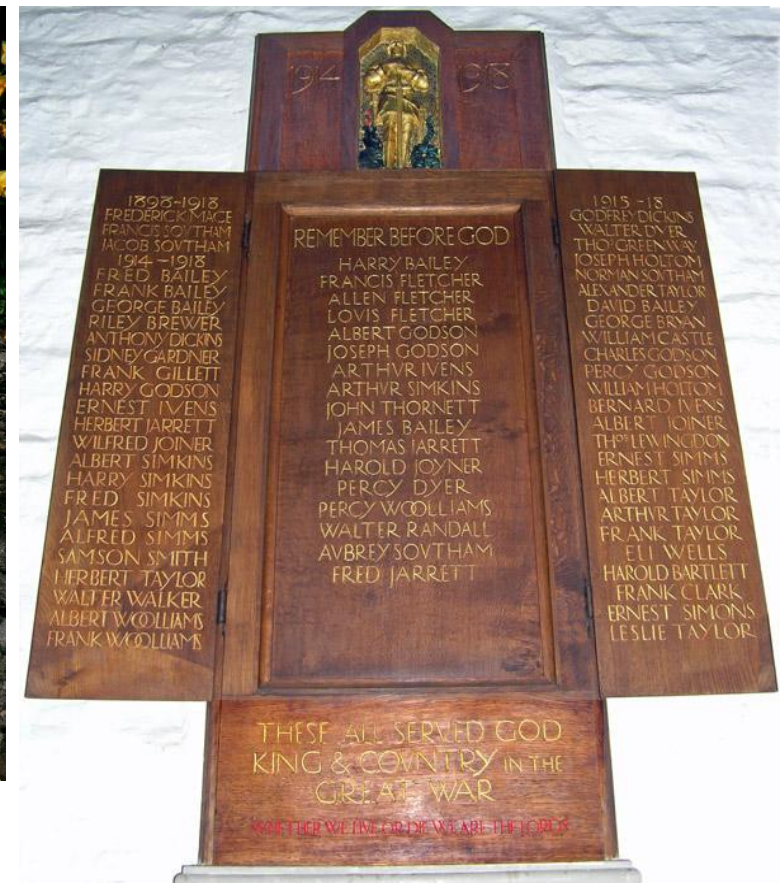 1914 1918
1898-1918
FREDERICK MACE
FRANCIS SOVTHAM
JACOB SOVTHAM
1914-1918
FRED BAILEY
FRANK BAILEY
GEORGE BAILEY
RILEY BREWER
ANTHONY DICKINS
SIDNEY GARDNER
FRANK GILLETT
HARRY GODSON
ERNEST IVENS
HERBERT JARRETT
WILFRED JOINER
ALBERT SIMKINS
HARRY SIMKINS
FRED SIMKINS
JAMES SIMMS
ALFRED SIMMS
SAMSON SMITH
HERBERT TAYLOR
WALTER WALKER
ALBERT WOOLLIAMS
FRANK WOOLLIAMS
REMEMBER BEFORE GOD
HARRY BAILEY
FRANCIS FLETCHER
ALLEN FLETCHER
LOVIS FLETCHER
ALBERT GODSON
JOSEPH GODSON
ARTHVR IVENS
ARTHVR SIMKINS
JOHN THORNETT
JAMES BAILEY
THOMAS JARRETT
HAROLD JOYNER
PERCY DYER
PERCY WOOLLIAMS
WALTER RANDALL
AVBREY SOVTHAM
FRED JARRETT
1915-18
GODFREY DICKINS
WALTER DYER
THOS GREENWAY
JOSEPH HOLTOM
NORMAN SOVTHAM
ALEXANDER TAYLOR
DAVID BAILEY
GEORGE BRYAN
WILLIAM CASTLE
CHARLES GODSON
PERCY GODSON
WILLIAM HOLTOM
BERNARD IVENS
ALBERT JOINER
THOS LEWINGDON
ERNEST SIMMS
HERBERT SIMMS
ALBERT TAYLOR
ARTHVR TAYLOR
FRANK TAYLOR
ELI WELLS
HAROLD BARTLETT
FRANK CLARK
ERNEST SIMONS
LESLIE TAYLOR
THESE ALL SERVED GOD
KING & COVNTRY IN THE
GREAT WAR
WHETHER WE LIVE OR DIE WE ARE THE LORDS